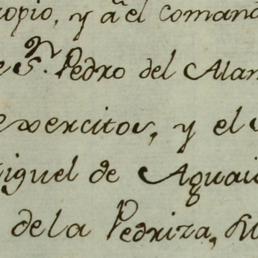 opio, y a el comand
e Sn. Pedro del Alam
exercitos, y el S
iguel de Aguai
de la Pedriza, Lu